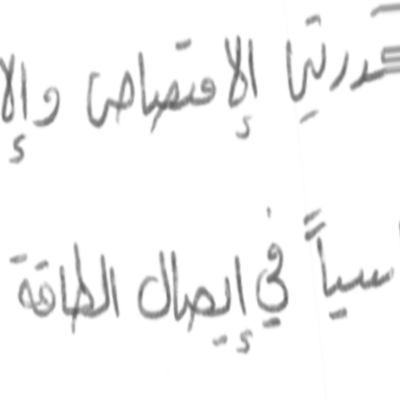 قدرتي الإمتصاص والإ
سياً في إيصال الطاقة